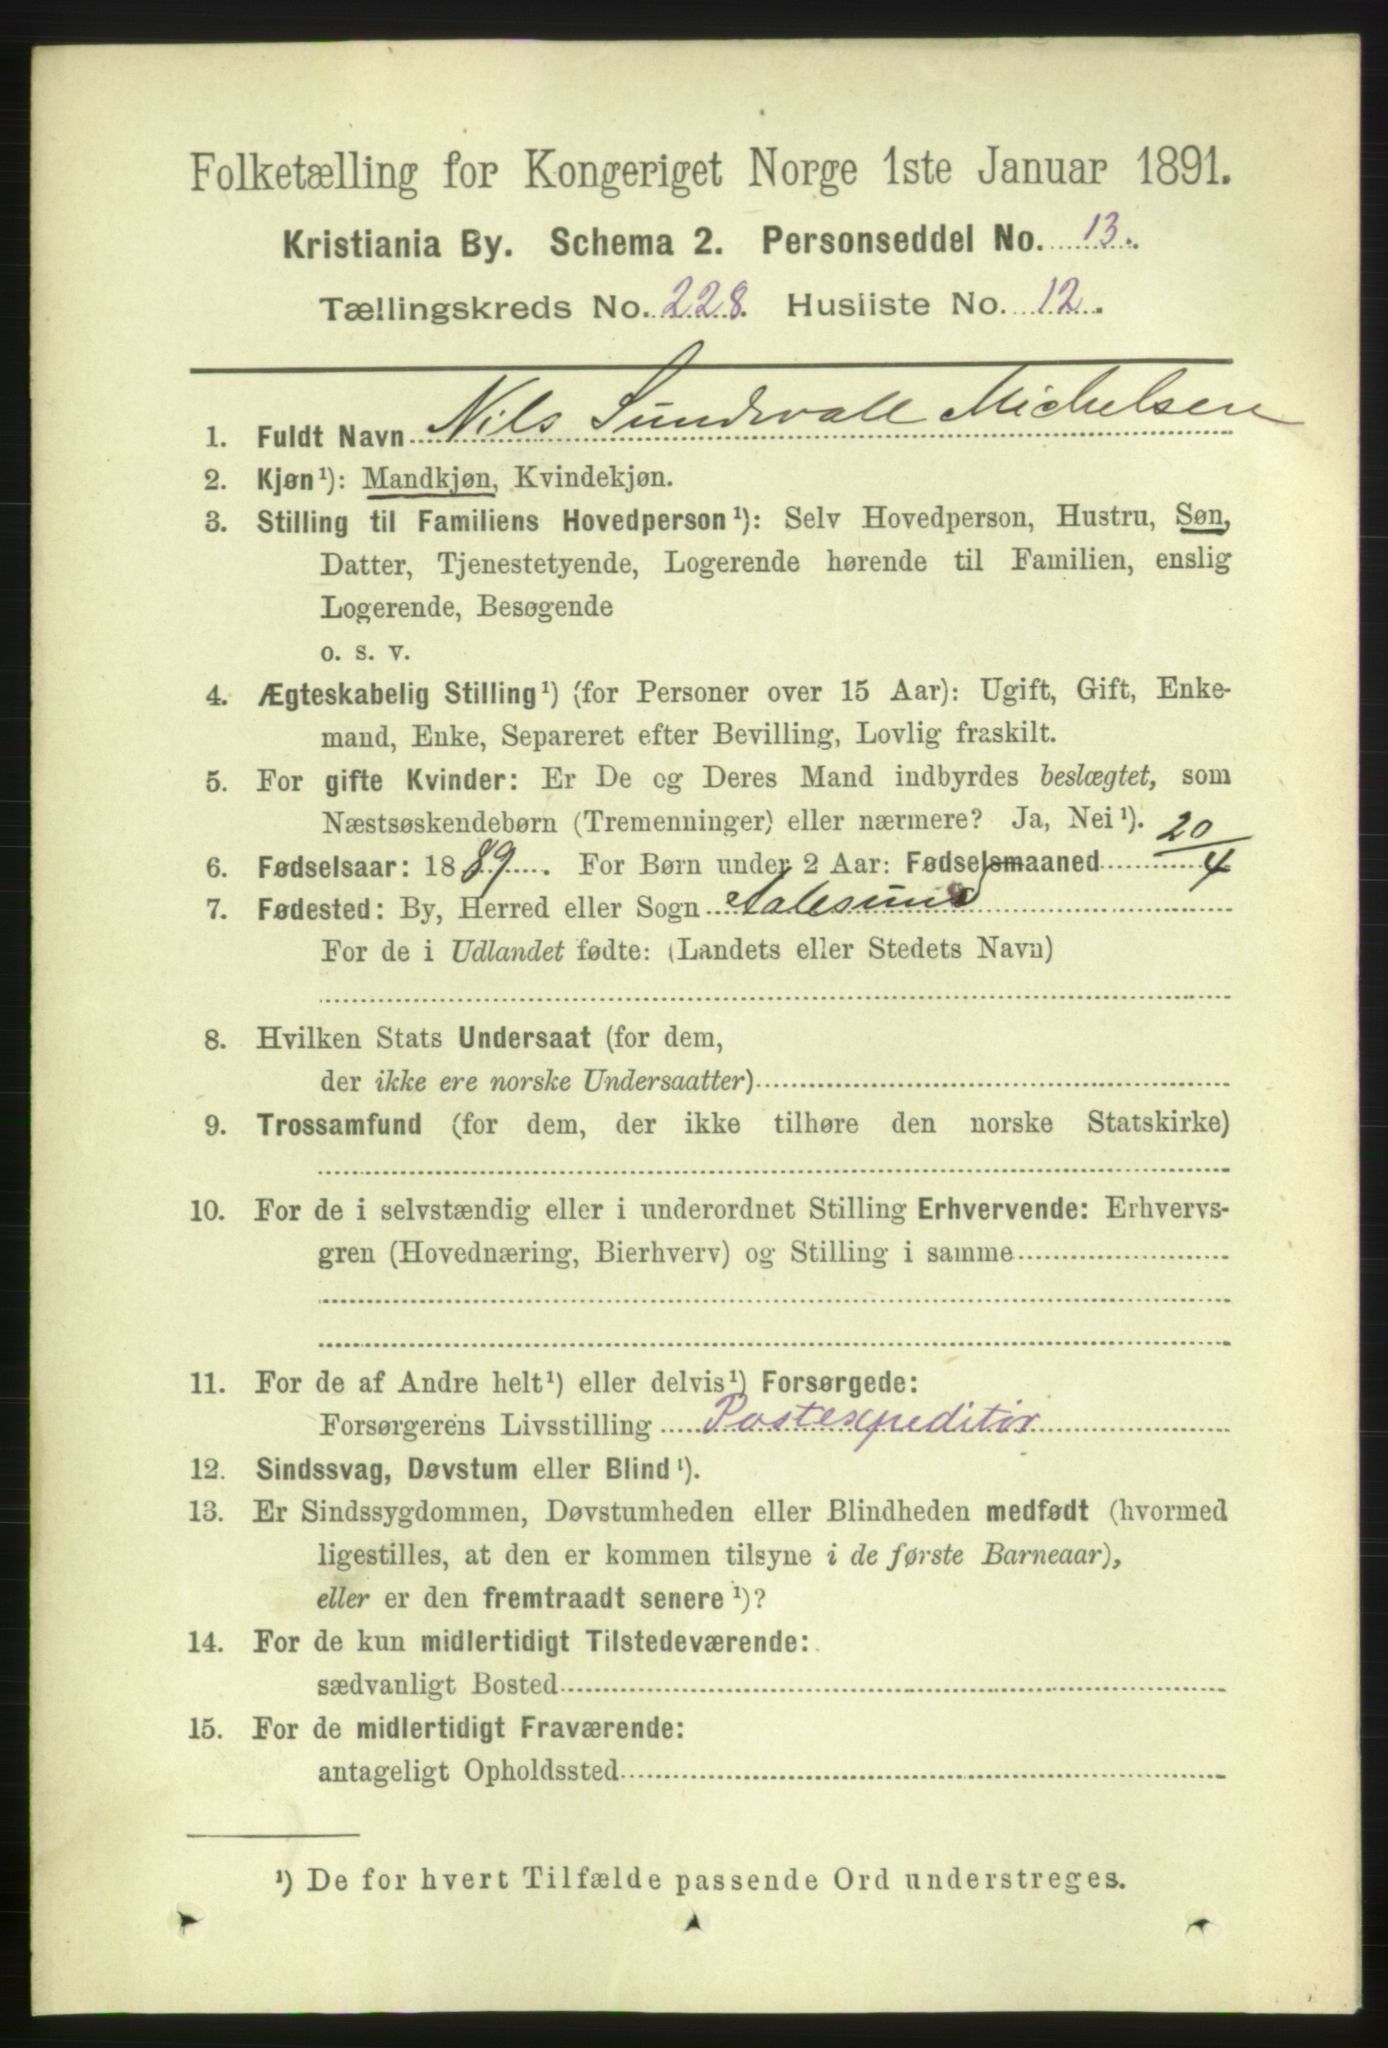 Folketælling for Kongeriget Norge 1ste Januar 1891.
Kristiania By. Schema 2. Personseddel No. 13.
Tællingskreds No. 228. Husliste No. 12.
1. Fuldt Navn Nils Sundvall Michelsen
2. Kjøn¹): Mandkjøn, Kvindekjøn.
3. Stilling til Familiens Hovedperson¹): Selv Hovedperson, Hustru, Søn,
Datter, Tjenestetyende, Logerende hørende til Familien, enslig
Logerende, Besøgende
o. s. v.
4. Ægteskabelig Stilling¹) (for Personer over 15 Aar): Ugift, Gift, Enke-
mand, Enke, Separeret efter Bevilling, Lovlig fraskilt.
5. For gifte Kvinder: Er De og Deres Mand indbyrdes beslægtet, som
Næstsøskendebørn (Tremenninger) eller nærmere? Ja, Nei¹).
6. Fødselsaar: 1889. For Børn under 2 Aar: Fødselsmaaned 20/4
7. Fødested: By, Herred eller Sogn Aalesund
For de i Udlandet fødte: (Landets eller Stedets Navn)
8. Hvilken Stats Undersaat (for dem,
der ikke ere norske Undersaatter)
9. Trossamfund (for dem, der ikke tilhøre den norske Statskirke)
10. For de i selvstændig eller i underordnet Stilling Erhvervende: Erhvervs-
gren (Hovednæring, Bierhverv) og Stilling i samme
11. For de af Andre helt¹) eller delvis¹) Forsørgede:
Forsørgerens Livsstilling Postexpeditør
12. Sindssvag, Døvstum eller Blind¹).
13. Er Sindssygdommen, Døvstumheden eller Blindheden medfødt (hvormed
ligestilles, at den er kommen tilsyne i de første Barneaar),
eller er den fremtraadt senere¹)?
14. For de kun midlertidigt Tilstedeværende:
sædvanligt Bosted
15. For de midlertidigt Fraværende:
antageligt Opholdssted
¹) De for hvert Tilfælde passende Ord understreges.